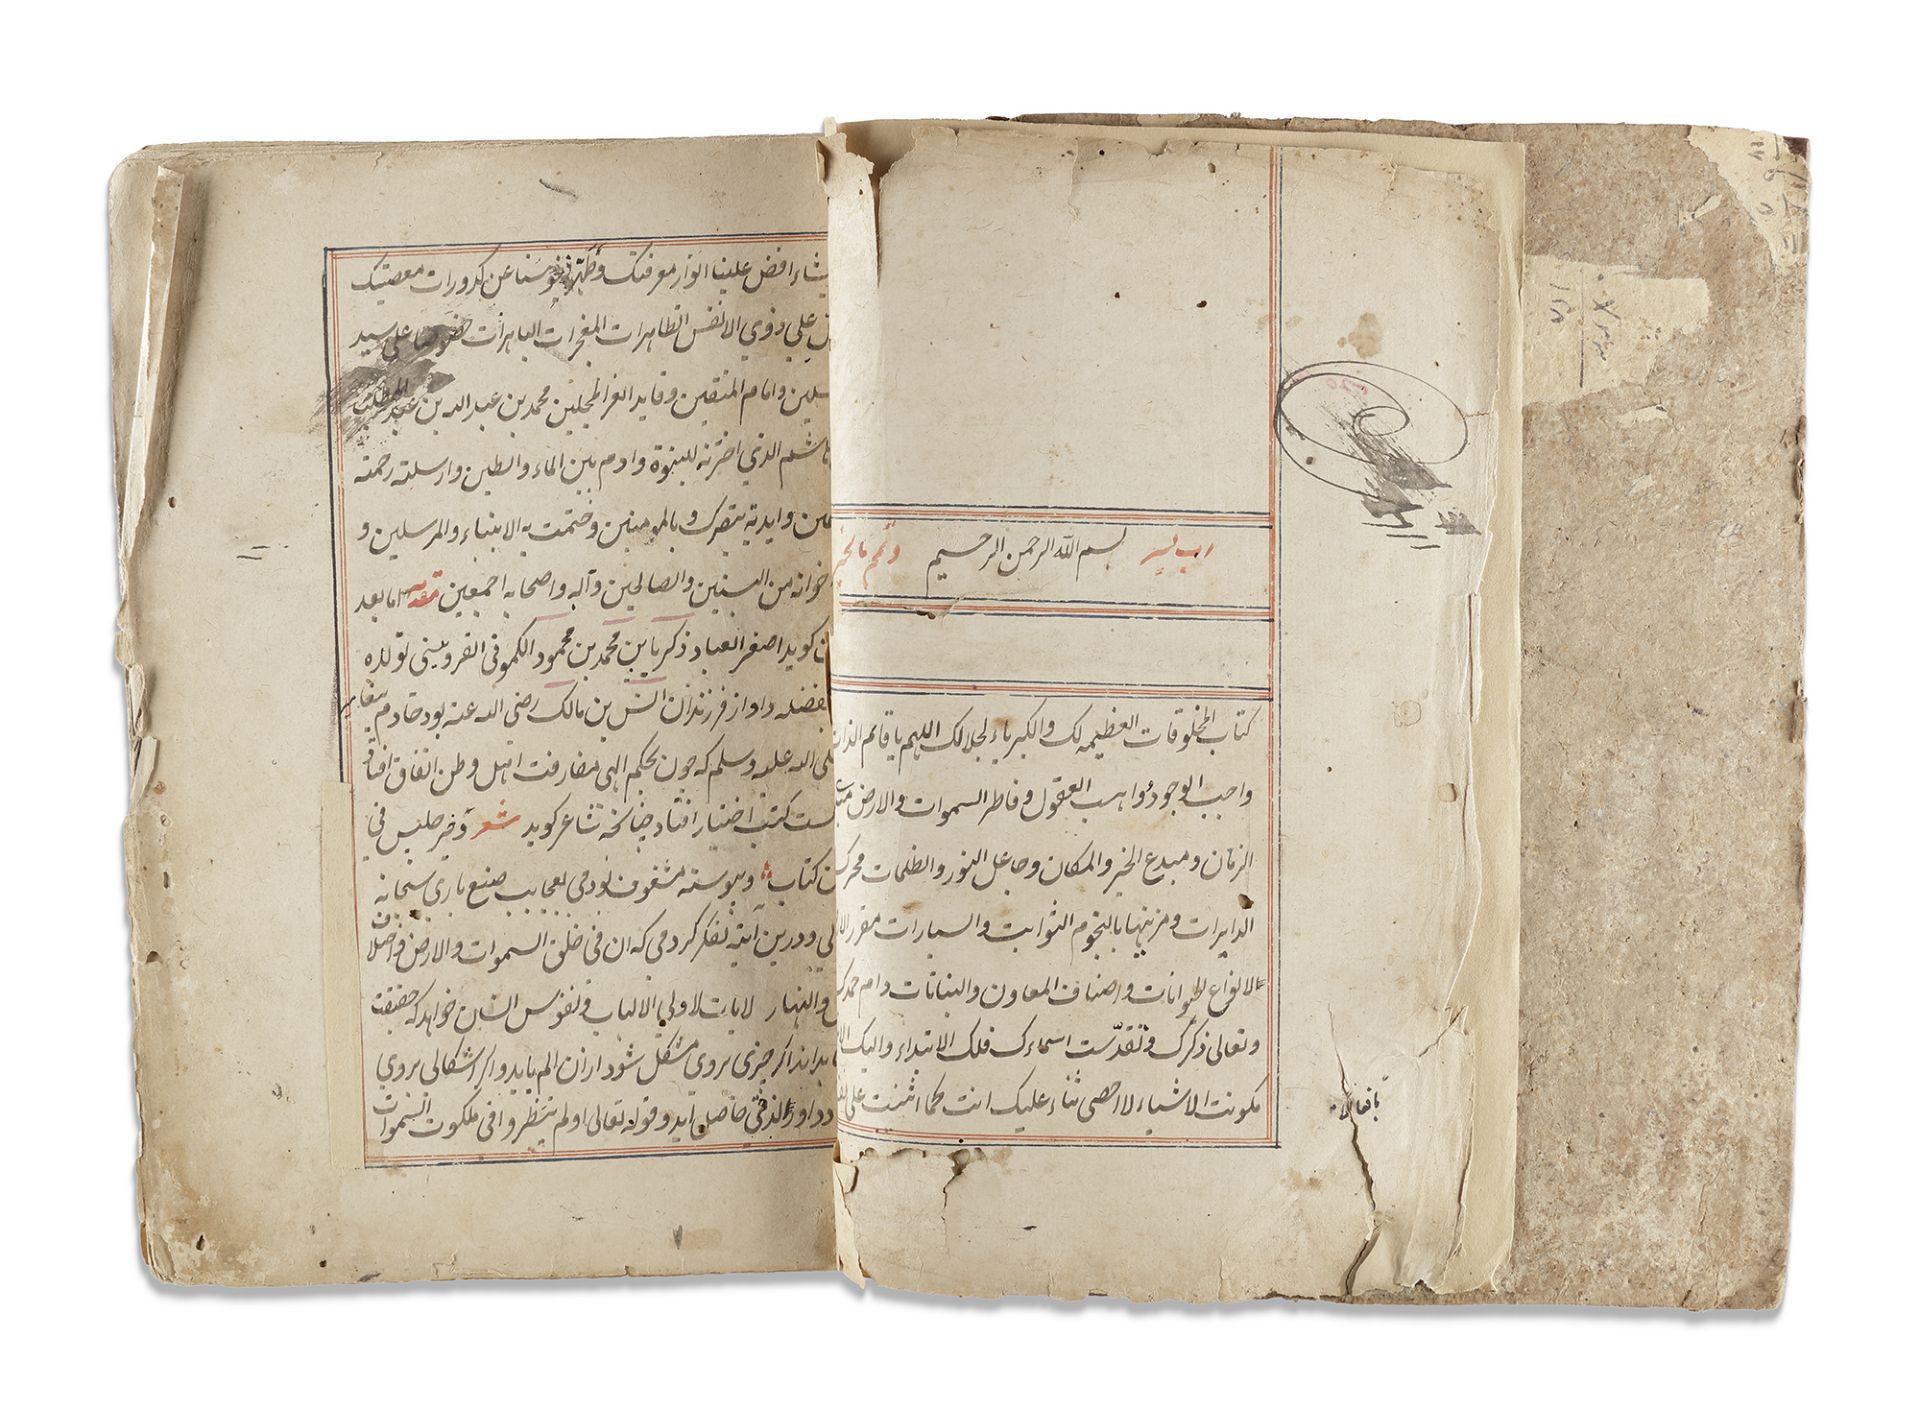 رب یسر بسم الله الرحمن الرحیم وتمم بالخیر
کتاب المخلوقات العظیمه لک والکبریاء لجلالک اللهم یا قائم الذات
واجب الوجود واهب العقول و فاطر السموات والارض
الزمان و مبدع الخیر والمکان و جاعل النور والظلمات محرک
الدایرات و مزینها بالنجوم الثوابت والسیارات مقرر
الانواع الحیوانات و اصناف المعاون والنباتات دام حمدک
و تعالی ذکرک و تقدست اسماءک فلک الابتداء والیک
مکونت الاشیاء لا احصی ثناء علیک انت کما اثنیت علی
یشاء افض علینا انوار معرفتک وطهر نفوسنا عن کدورات معصیتک
علی ذوی الانفس الطاهرات المعجزات الباهرات خصوصا علی سید
وامام المتقین و قاید الغر المحجلین محمد بن عبد الله بن عبد المطلب
هاشم الذی اخترته للنبوة و ادم بین الماء والطین و ارسلته رحمته
وایدته بنصرک و بالمومنین و ختمت به الانبیاء والمرسلین و
اخوانه من النبیین والصالحین وآله واصحابه اجمعین مقدمه اما بعد
کوید اصغر العباد ذکریا بن محمد بن محمود الکمونی القزوینی تولده
بفضله داد از فرزندان انس بن مالک رضی الله عنه بود خادم پیغامبر
صلی الله علیه وسلم که چون بحکم الهی مفارقت اهل و طن اتفاق افتاد
کتب اختیار افتاد چنانکه شاعر کوید شعر و خیر جلیس فی
کتاب و پیوسته مشغوف بودمی بعجایب صنع باری سبحانه
و درین آیته تفکر کردمی که ان فی خلق السموات والارض واختلاف
والنهار لایات لاولی الالباب و نفوس انسان خواهد که حقیقت
بداند اکر چیزی بروی مشکل شود از ان الم یابد و اکر اشکالی بروی
حاصل اید و قوله تعالی اولم ینظروا فی ملکوت السموات